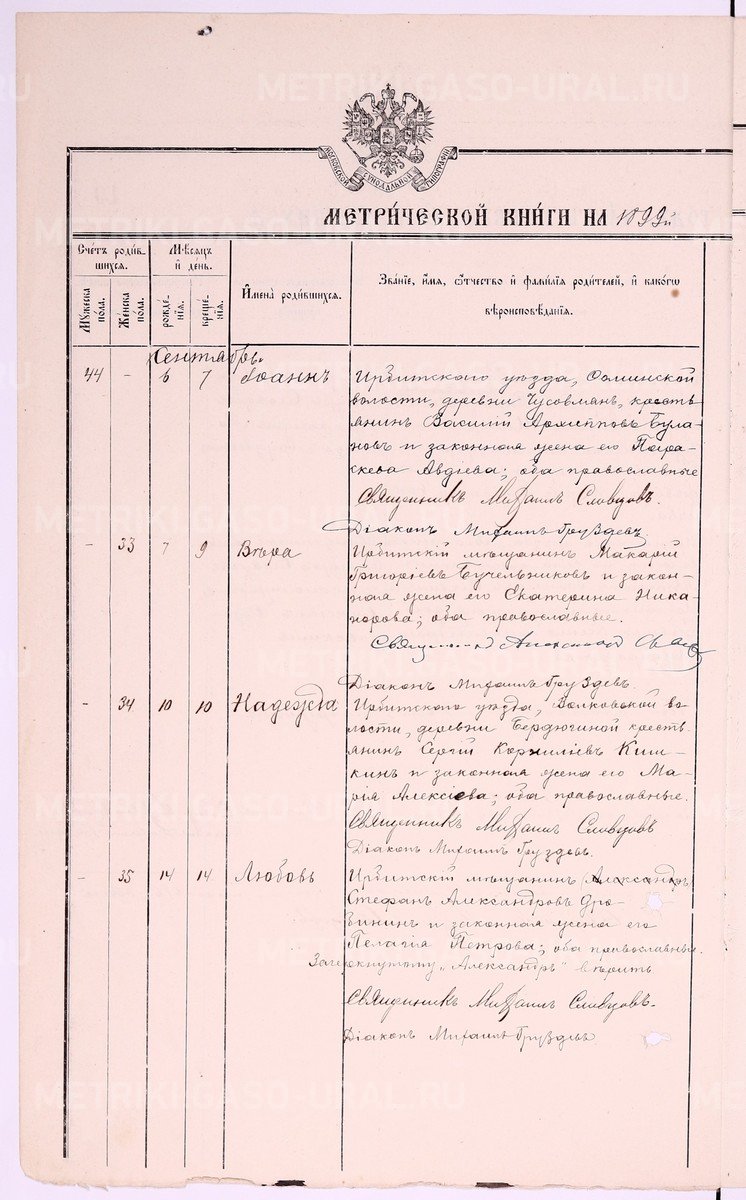 METRIKI.GASO-URAL.RU
МОСКОВСКОЙ СѴНОДАЛЬНОЙ ТИПОГРАФІИ
МЕТРИ́ЧЕСКОЙ КНИ́ГИ НА 1899й
Сче́тъ роди́вшихся.
Мꙋжеска по́ла.
Же́нска по́ла.
Мѣ́сѧцъ и҆ де́нь.
рожде́нїѧ.
креще́нїѧ.
И҆мена̀ роди́вшихсѧ.
Зва́нїе, и҆́мѧ, ѻ҆́тчество и҆ фами́лїѧ роди́телей, и҆ како́гѡ
вѣроисповѣ́данїѧ.
Сентябрь.
44 - 6 7 Іоаннъ
Ирбитскаго уѣзда, Осминской
волости, деревни Чусовлянъ, кресть-
янинъ Василій Архипповъ Була-
новъ и законная жена его Пара-
скева Авдіева; оба православные
Священникъ Михаилъ Словцовъ.
Діаконъ Михаилъ Груздевъ
- 33 7 9 Вѣра
Ирбитскій мѣщанинъ Макарій
Григоріевъ Бучельниковъ и закон-
ная жена его Екатерина Ника-
норова; оба православные.
Священникъ
Діаконъ Михаилъ Груздевъ.
- 34 10 10 Надежда
Ирбитскаго уѣзда, Волковской во-
лости, деревни Бердюгиной кресть-
янинъ Сергій Корниліевъ Киш-
кинъ и законная жена его Ма-
рія Алексіева; оба православные.
Священникъ Михаилъ Словцовъ
Діаконъ Михаилъ Груздевъ.
- 35 14 14 Любовь
Ирбитскій мѣщанинъ Александръ
Стефанъ Александровъ Дро-
бининъ и законная жена его
Пелагія Петрова; оба православные.
Зачеркнутому „Александръ" вѣрить
Священникъ Михаилъ Словцовъ.
Діаконъ Михаилъ Груздевъ